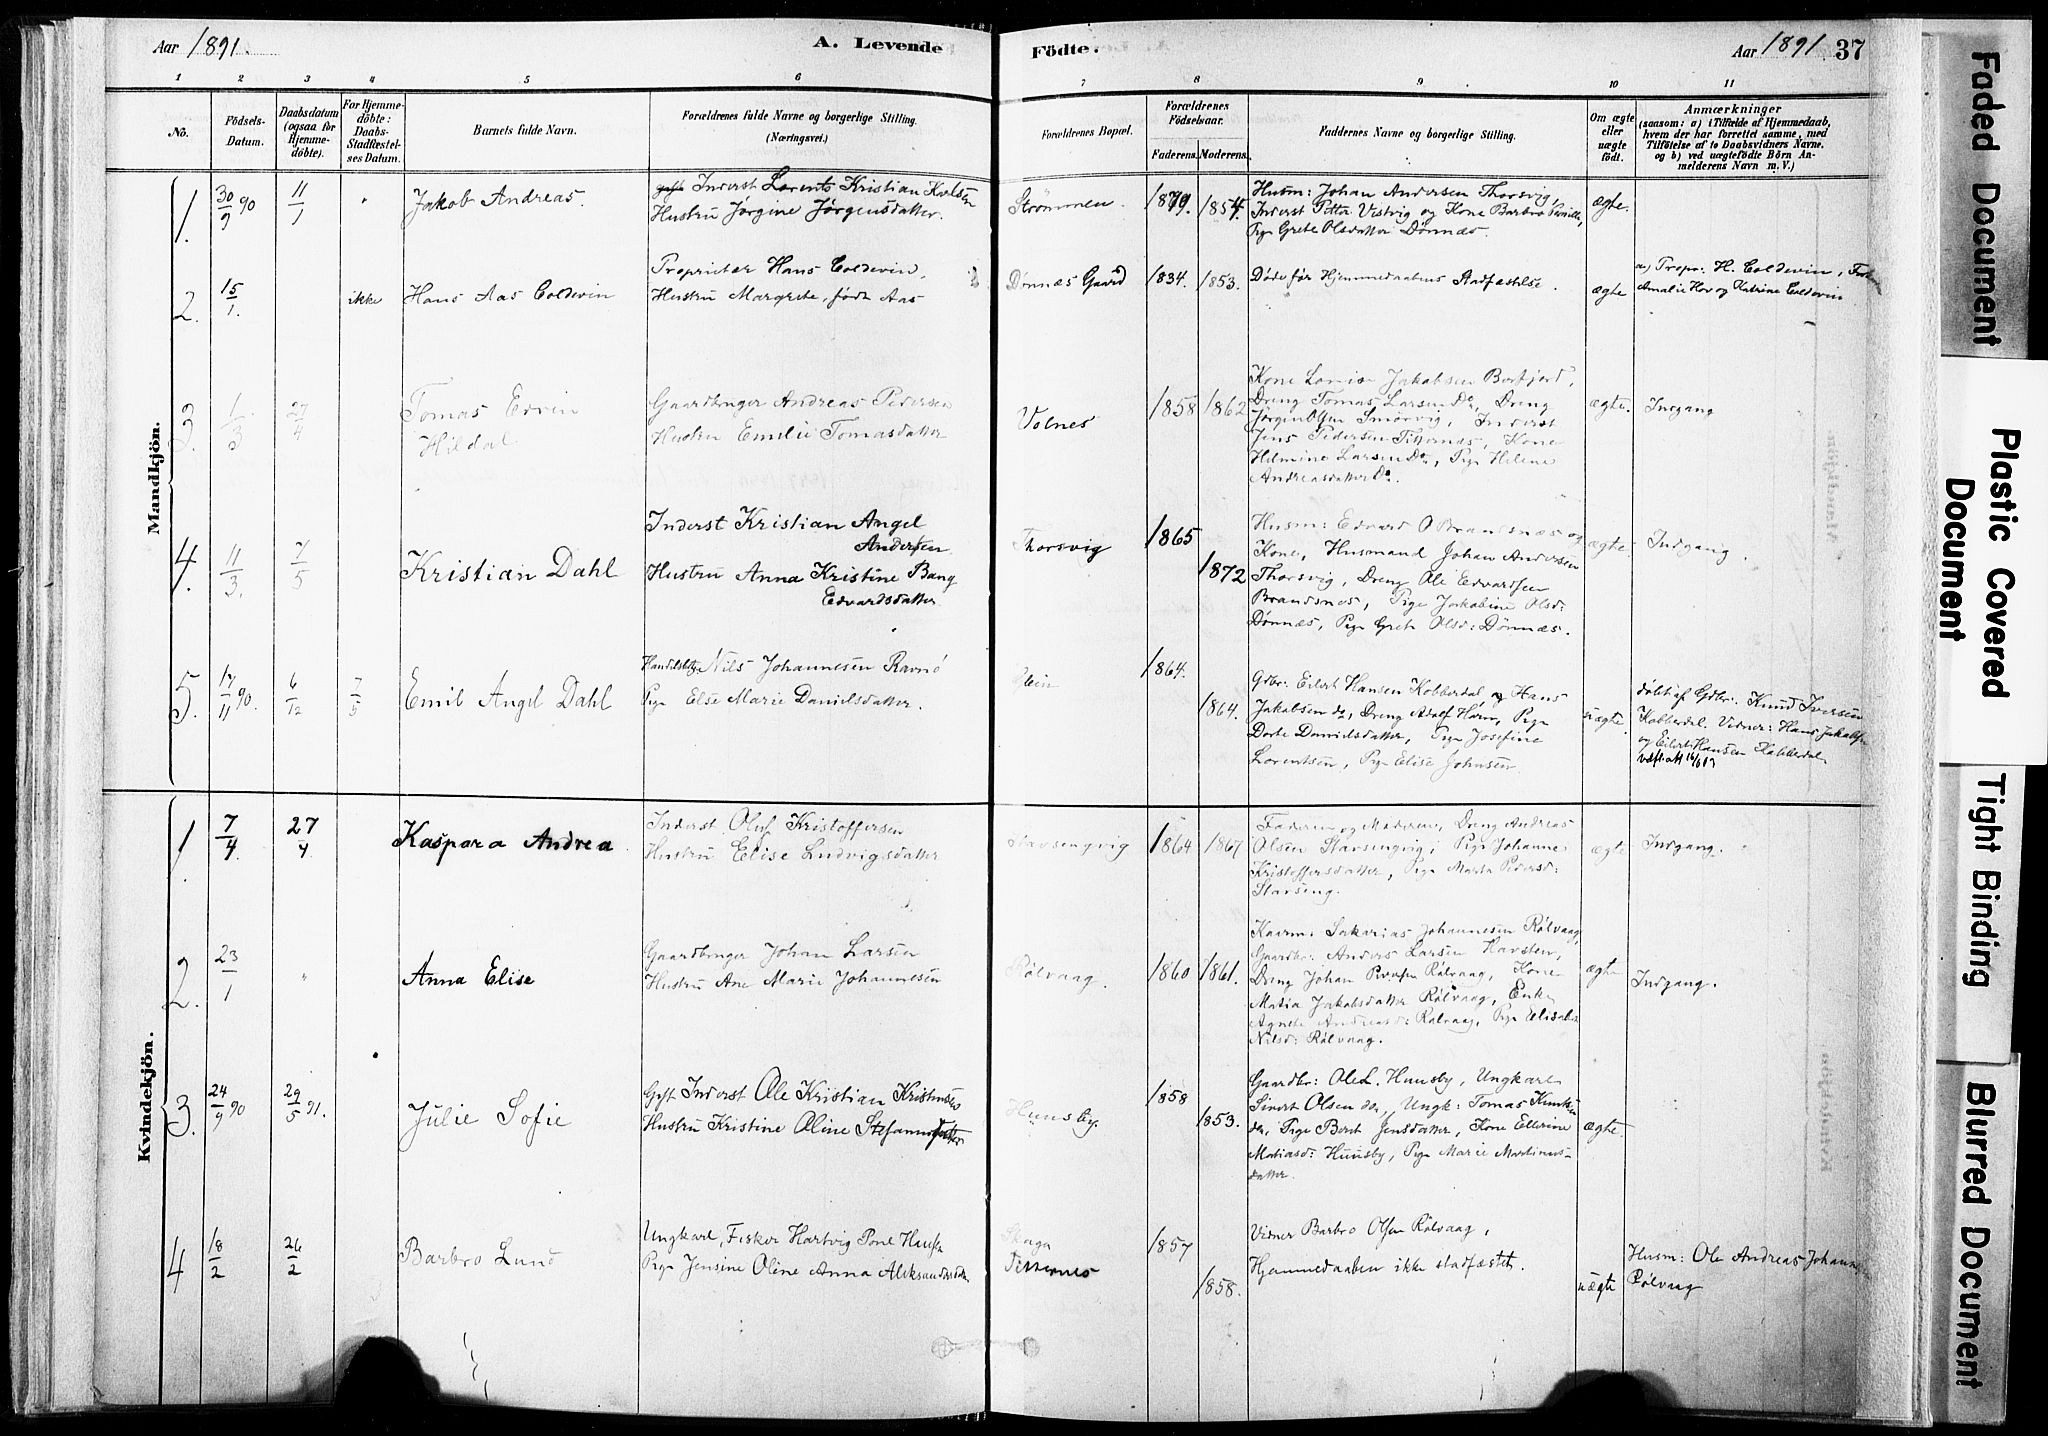 Aar 1891.
A. Levende
Födte.
Aar 1891
37
1 2 3 4 5 6 7 8 9 10 11
No.
Födsels-
Datum.
Daabsdatum
(ogsaa for
Hjemme-
döbte).
For Hjemme-
döbte:
Daabs-
Stadfæstel-
ses Datum.
Barnets fulde Navn.
Forældrenes fulde Navne og borgerlige Stilling.
(Næringsvei.)
Forældrenes Bopæl.
Forældrenes
Födselsaar.
Faderens. Moderens.
Faddernes Navne og borgerlige Stilling.
Om ægte
eller
uægte
født.
Anmærkninger
(saasom: a) i Tilfælde af Hjemmedaab,
hvem der har forrettet samme, med
Tilföielse af to Daabsvidners Navne.
og b) ved uægtefödte Börn An-
melderens Navn m. V.)
Mandkjön.
1. 30/9 90 11/1 "
Jakob Andreas.
gift Inderst Lorents Kristian
Hustru Jørgine Jørgensdatter.
Strømmen.
1879. 1854.
Husm: Johan Andersen Thorsvig,
Inderst Petter Vistvig og Kone Barbro Pernille,
Pige Grete Olsdatter Dønnæs.
ægte.
2. 15/1. ikke
Hans Aas Coldevin
Proprietær Hans Coldevin,
Hustru Margrete, født Aas
Dønnæs Gaard
1834. 1853.
Døde før Hjemmedaabens Stadfæstelse.
ægte
a) Propr: H. Coldevin,
Amalie Hov og Katrine Coldevin
3. 1/3 27/4
Tomas Edvin
Hildal
Gaardbruger Andreas Pedersen
Hustru Emilie Tomasdatter
Volnes
1858 1862
Kone Lovise Jakobsen Breifjord,
Dreng Tomas Larsen Do, Dreng
Jørgen Olsen Smørvig, Inderst
Jens Pedersen Titternes, Kone
Helmine Larsen Do, Pige Helene
Andreasdatter Do.
ægte.
Indgang
4. 11/3. 7/5
Kristian Dahl
Inderst Kristian Angel
Andersen
Hustru Anna Kristine Bang
Edvardsdatter
Thorsvig
1865
1872
Husm: Edvard O Brandsnæs og
Kone, Husmand Johan Andersen
Thorsvig, Dreng Ole Edvardsen
Brandsnes, Pige Jakobine Olsd:
Dønnæs, Pige Grete Olsd: Dønnæs.
ægte.
Indgang.
5. 17/11 90. 6/12 7/5
Emil Angel Dahl
Nils Johannesen Ravnø
Pige Else Marie Danielsdatter.
Glein
1864.
1864.
Gdbr: Eilert Hansen Kobberdal og Hans
Jakobsen do, Dreng Adolf Horn, Pige
Dorte Danielsdatter, Pige Josefine
Lorentsen, Pige Elise Johnsen
uægte.
døbt af Gdbr: Knud Iversen
Kobberdal. Vidner: Hans Jakobsen
og Eilert Hansen Kobberdal.
Kvindekjön.
1. 7/4. 27/4
Kaspara Andrea
Inderst Oluf Kristoffersen
Hustru Elise Ludvigsdatter
Stavsengvig
1864 1867
Faderen og Moderen, Dreng Andreas
Olsen Stavsengvig, Pige Johanne
Kristoffersdatter, Pige Marta Pedersd:
Stavseng.
ægte
Indgang.
2. 23/1 "
Anna Elise
Gaardbruger Johan Larsen
Hustru Ane Marie Johannesen
Rølvaag.
1860 1861.
Kaarm: Sakarias Johannesen Rølvaag,
Gaardbr: Anders Larsen Havsten,
Dreng Johan Rølvaag, Kone
Matia Jakobsdatter Rølvaag, Enke
Agnete Andreasd: Rølvaag, Pige Elisabet
Nilsd: Rølvaag.
ægte
Indgang.
3. 24/9 90 29/5 91.
Julie Sofie
Gift Inderst Ole Kristian Kristensen
Hustru Kristine Oline Stefansdatter
Hunsby.
1858
1853.
Gaardbr: Ole L. Hunsby, Ungkarl
Sivert Olsen do, Ungk: Tomas Knutsen
do, Pige Berit Jensdatter, Kone Ellerine
Matiasd: Hunsby, Pige Marie Martinus-
datter.
ægte.
4 18/2 26/2
Barbro Lund
Ungkarl, Fisker Hartvig Hansen
Pige Jensine Oline Anna Aleksandersdatter
Skaga
Titternes
1857
1858.
Vidner Barbro Olsen Rølvaag,
Hjemmedaaben ikke stadfæstet.
uægte
Husm: Ole Andreas
Rølvaag
Faded Document
Plastic Covered
Document
Tight Binding
Blurred Document